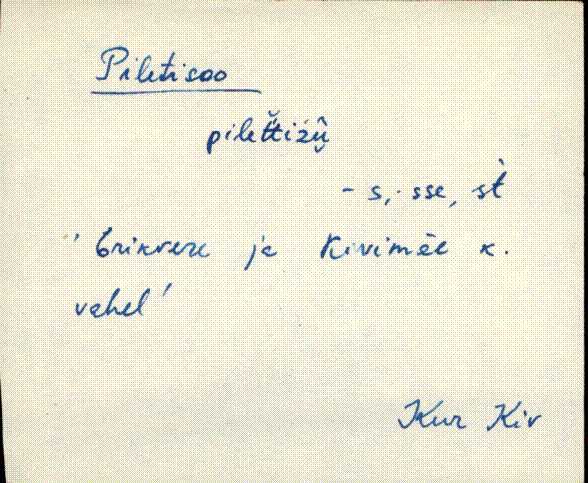 Piletisoo
pilet̆tizū̬
- s, - sse, st̀
' Erikvere ja Kivimäe k.
vahel '
Kur Kiv